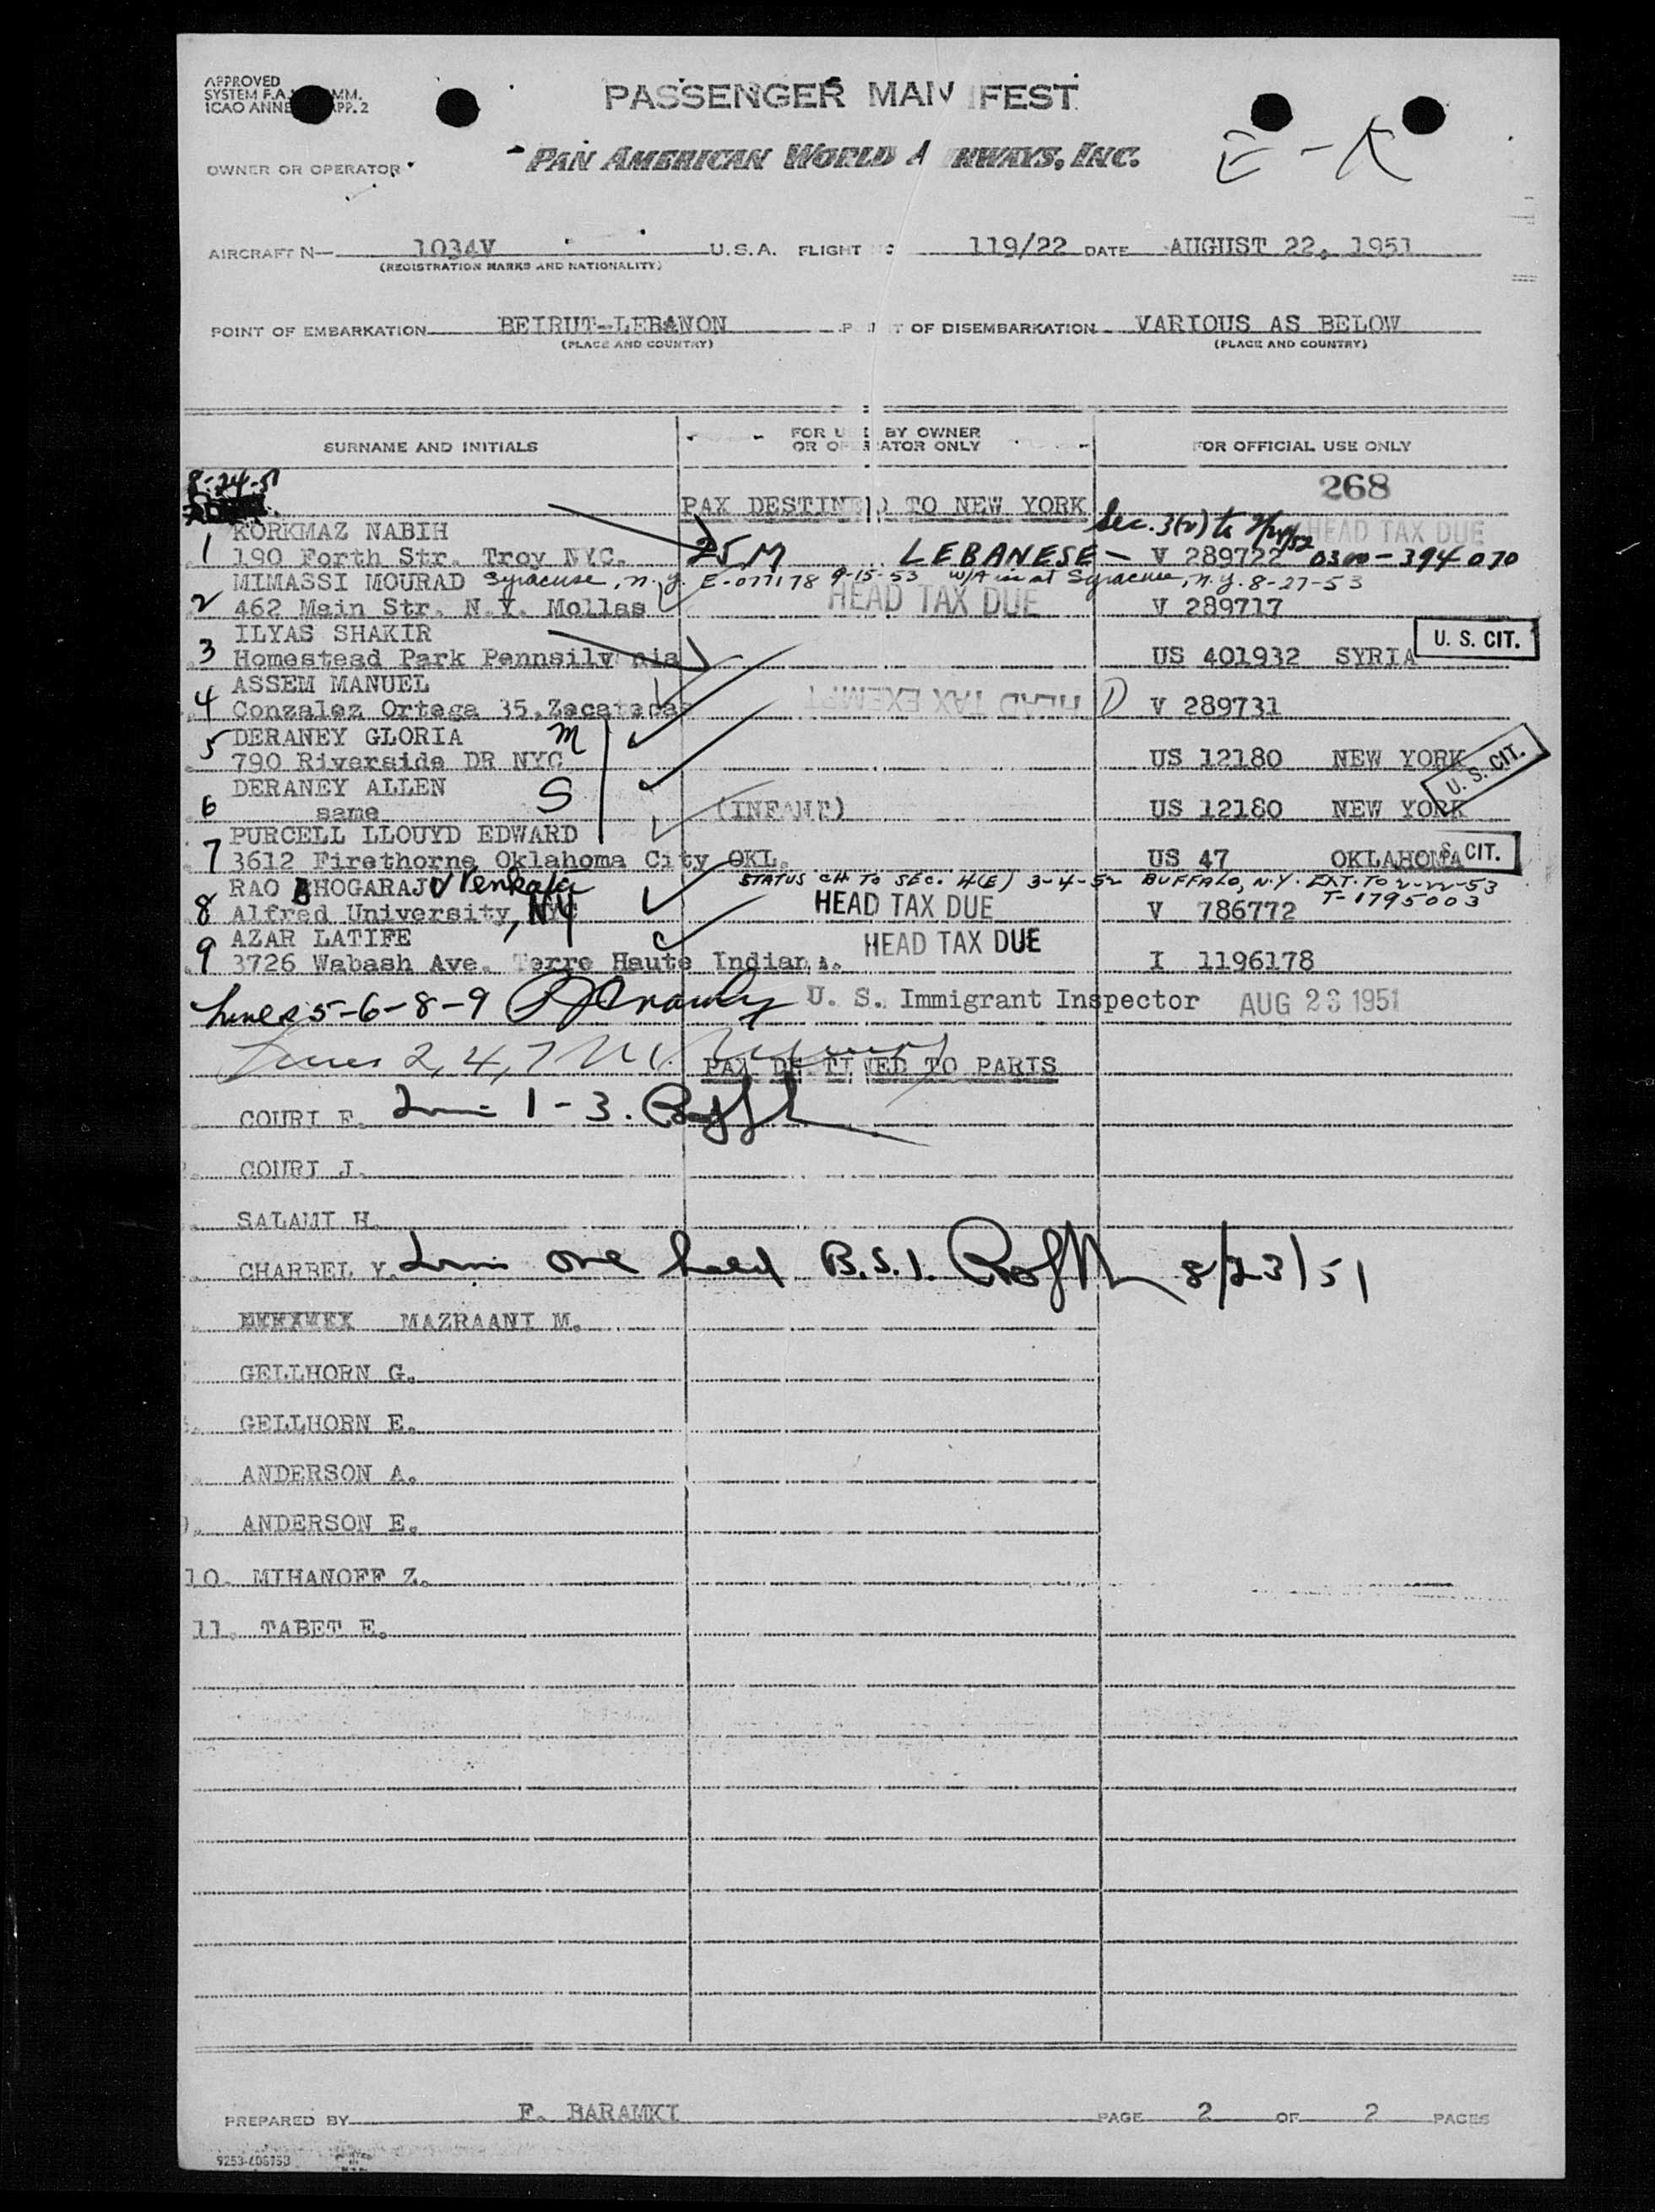 APPROVED
SYSTEM F.A. MM.
ICAO ANNE APP. 2
PASSENGER MANIFEST
E-K
OWNER OR OPERATOR
PAN AMERICAN WORLD AIRWAYS, INC.
AIRCRAFT N— 1034V U.S.A. FLIGHT 119/22 DATE AUGUST 22, 1951
(REGISTRATION MARKS AND NATIONALITY)
POINT OF EMBARKATION BEIRUT-LEBANON POINT OF DISEMBARKATION VARIOUS AS BELOW
(PLACE AND COUNTRY) (PLACE AND COUNTRY)
SURNAME AND INITIALS FOR USE BY OWNER OR OPERATOR ONLY FOR OFFICIAL USE ONLY
8-24-51
268
PAX DESTINED TO NEW YORK
Sec. 3(2) to HEAD TAX DUE
KORKMAZ NABIH
1 190 Forth Str. Troy NYC. 25 M LEBANESE — V 289722 0300-394070
MIMASSI MOURAD Syracuse, n.y. E-077178 9-15-53 W/A in at Syracuse, n.y. 8-27-53
2 462 Main Str. N.Y. Mollas HEAD TAX DUE V 289717
ILYAS SHAKIR
3 Homestead Park Pennsilvania US 401932 SYRIA U. S. CIT.
ASSEM MANUEL
4 Conzalez Ortega 35, Zecatecas HEAD TAX EXEMPT V 289731
DERANEY GLORIA M
5 790 Riverside DR NYC US 12180 NEW YORK U. S. CIT.
DERANEY ALLEN S
6 same (INFANT) US 12180 NEW YORK
PURCELL LLOUYD EDWARD
7 3612 Firethorne Oklahoma City OKL. US 47 OKLAHOMA S. CIT.
RAO BHOGARAJU Venkata STATUS CH TO SEC. 4(E) 3-4-52 BUFFALO, N.Y. EXT. TO 2-22-53
8 Alfred University, NY HEAD TAX DUE V 786772 T-1795003
AZAR LATIFE
9 3726 Wabash Ave. Terre Haute Indiana. HEAD TAX DUE I 1196178
Lines 5-6-8-9 U. S. Immigrant Inspector AUG 23 1951
Lines 2, 4, 7
PAX DESTINED TO PARIS
COURI F. 1-3.
COURI J.
SALAMI H.
CHARBEL Y. Line one held B.S.I. 8/23/51
MAZRAANI M.
GELLHORN G.
GELLHORN E.
ANDERSON A.
ANDERSON E.
10. MIHANOFF Z.
11. TABET E.
PREPARED BY F. BARAMKI PAGE 2 OF 2 PAGES